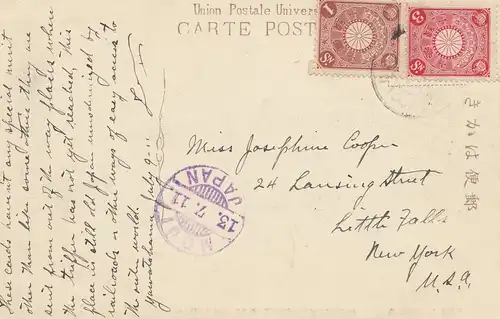 Union Postale Univers
CARTE POST
1
Sn
3
Sn
きかは便郵
Miss Josephine Cooper
24 Lansing Street
Little Falls
New York
U.S.A.
MOJI
13.7.11
JAPAN
These cards haven't any special merit
other than being some they are
sent from out of the way places where
the tripper has not yet reached, this
place is still old Japan unmodernized by
railroads or other ways of easy access to
the outer world.
July 9